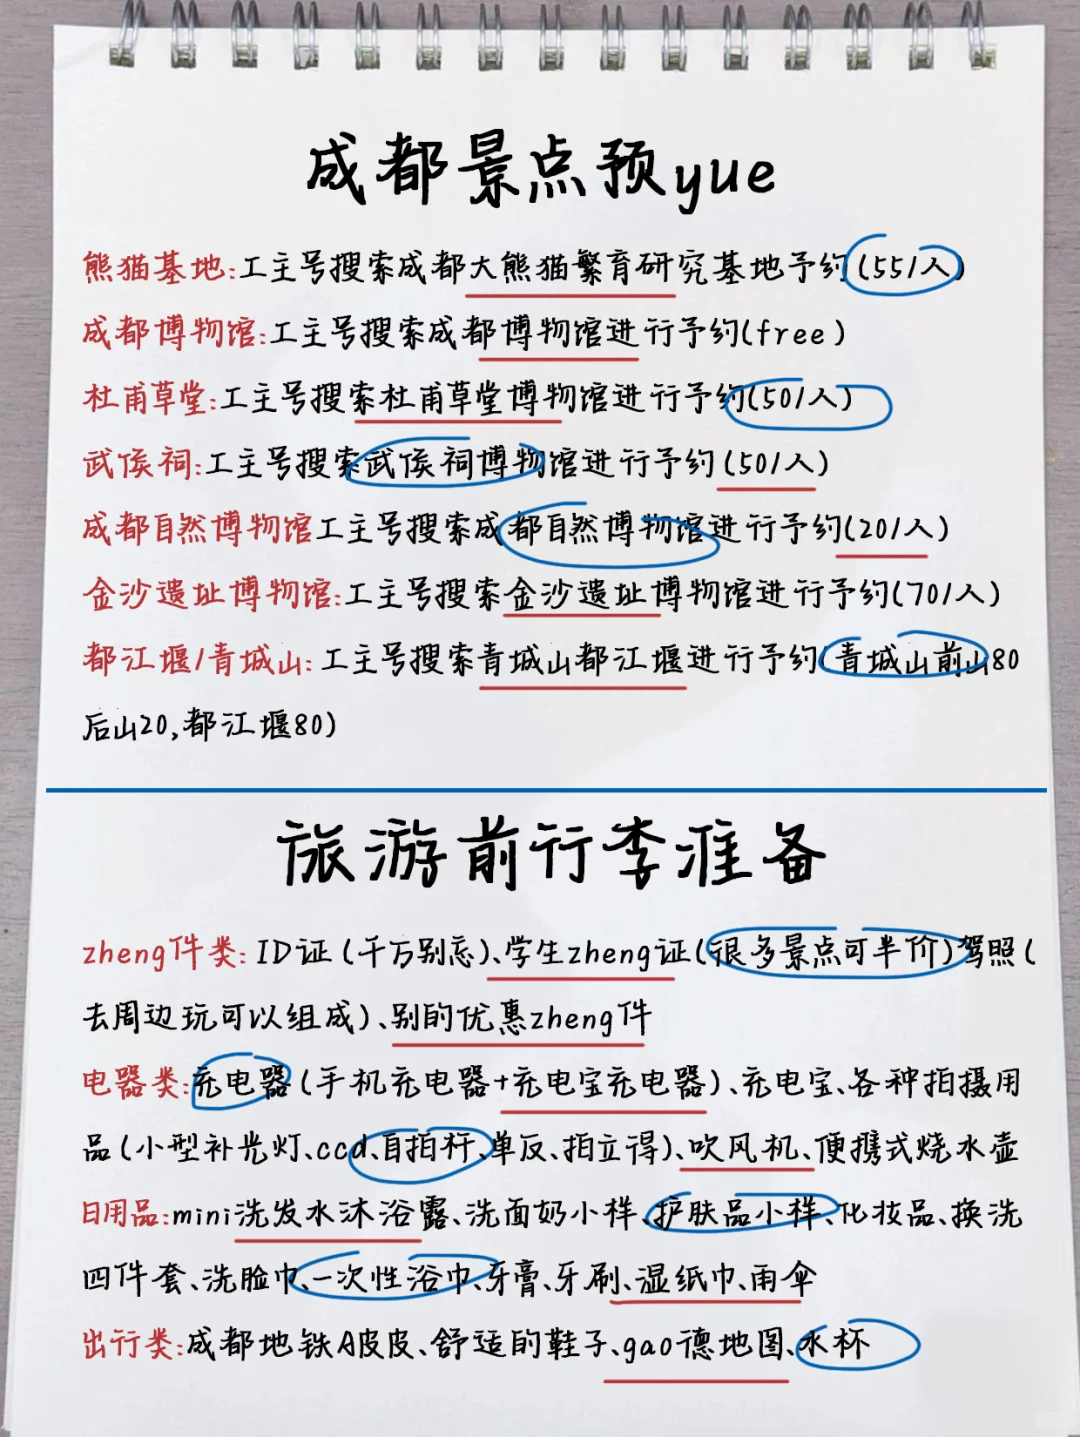 成都景点预yue
熊猫基地:工主号搜索成都大熊猫繁育研究基地予约(55/人)
成都博物馆:工主号搜索成都博物馆进行予约(free)
杜甫草堂:工主号搜索杜甫草堂博物馆进行予约(50/人)
武侯祠:工主号搜索武侯祠博物馆进行予约(50/人)
成都自然博物馆工主号搜索成都自然博物馆进行予约(20/人)
金沙遗址博物馆:工主号搜索金沙遗址博物馆进行予约(70/人)
都江堰/青城山:工主号搜索青城山都江堰进行予约(青城山前山80
后山20,都江堰80)
旅游前行李准备
zheng件类:ID证(千万别忘)、学生zheng证(很多景点可半价)驾照(
去周边玩可以组成)、别的优惠zheng件
电器类:充电器(手机充电器+充电宝充电器)、充电宝、各种拍摄用
品(小型补光灯、ccd、自拍杆、单反、拍立得)、吹风机、便携式烧水壶
日用品:mini洗发水沐浴露、洗面奶小样、护肤品小样、化妆品、换洗
四件套、洗脸巾、一次性浴巾、牙膏、牙刷、湿纸巾、雨伞
出行类:成都地铁A皮皮、舒适的鞋子、gao德地图、水杯